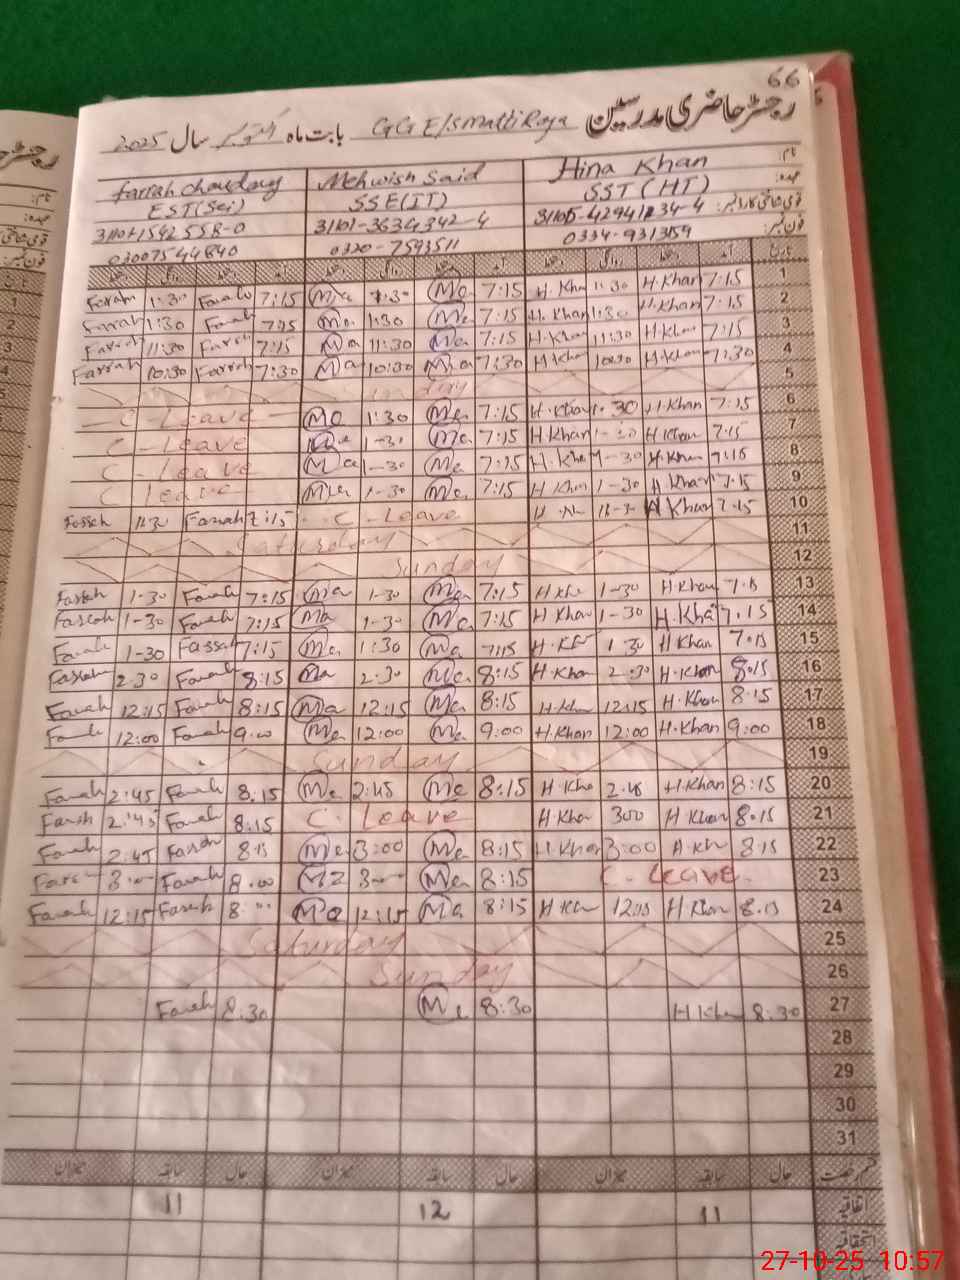 66
رجسٹر حاضری مدرسین GGE/S بابت ماہ اکتوبر سال 2025
نام: Hina Khan Mehwish Said Farrah
عہدہ: SST (HT) SSE (IT) EST (Sci)
قومی شناختی کارڈ نمبر: 31101-3634342-4
فون نمبر: 0320-7593511 03007544840
تاریخ آمد دستخط روانگی دستخط آمد دستخط روانگی دستخط آمد دستخط روانگی دستخط
Farrah 1:30 Farah 7:15 Ma 1:30 Me 7:15 H.Kha 1:30 H.Khan 7:15 1
Farrah 1:30 Farah 7:15 Ma 1:30 Me 7:15 H.Khan 1:30 H.Khan 7:15 2
Farrah 11:30 Farrah 7:15 Ma 11:30 Me 7:15 H.Khan 11:30 H.Khan 7:15 3
Farrah 10:30 Farrah 7:30 Ma 10:30 Ma 7:30 H.Khan 10:30 H.Khan 7:30 4
5
C - Leave Me 1:30 Me 7:15 H.Khan 1:30 H.Khan 7:15 6
C - Leave 1-30 Me 7:15 H.Khan 1-30 H.Khan 7:15 7
C - Leave Ma 1-30 Me 7:15 H.Kha 1-30 H.Khan 7:15 8
C leave Me 1-30 Me 7:15 H.Khan 1-30 H.Khan 7:15 9
Farrah 1:30 Farrah 7:15 C - Leave H.Khan 7:15 10
Saturday 11
Sunday 12
Farrah 1-30 Farah 7:15 Ma 1-30 Me 7:15 H.Kha 1-30 H.Khan 7:15 13
Farrah 1-30 Farah 7:15 Ma 1-30 Me 7:15 H.Khan 1-30 H.Kha 7:15 14
Farah 1-30 Farrah 7:15 Me 1:30 Me 7:15 1:30 H.Khan 7:15 15
Farrah 2:30 Farah 8:15 Ma 2:30 Me 8:15 H.Khan 2:30 H.Khan 8:15 16
Farah 12:15 Farah 8:15 Ma 12:15 Me 8:15 H.Kha 12:15 H.Khan 8:15 17
Farah 12:00 Farah 9:00 Me 12:00 Me 9:00 H.Khan 12:00 H.Khan 9:00 18
Sunday 19
Farah 2:45 Farah 8:15 Me 2:45 Me 8:15 H.Kha 2:45 H.Khan 8:15 20
Farah 2:45 Farah 8:15 C. Leave H.Khan 300 H Khan 8:15 21
Farah 2:45 Farah 8:15 Me 3:00 Me 8:15 H.Khan 3:00 H.Kh 8:15 22
Farah 3:00 Farah 8:00 3:00 Me 8:15 C. Leave 23
Farah 12:15 Farah 8:00 Ma 12:15 Ma 8:15 H.Kha 12:15 H Khan 8:15 24
Saturday 25
Sunday 26
Farah 8:30 Me 8:30 H Khan 8:30 27
28
29
30
31
قسم رخصت حال سابقہ میزان حال سابقہ میزان حال سابقہ میزان
اتفاقیہ 11 12 11
استحقاقیہ
27-10-25 10:57